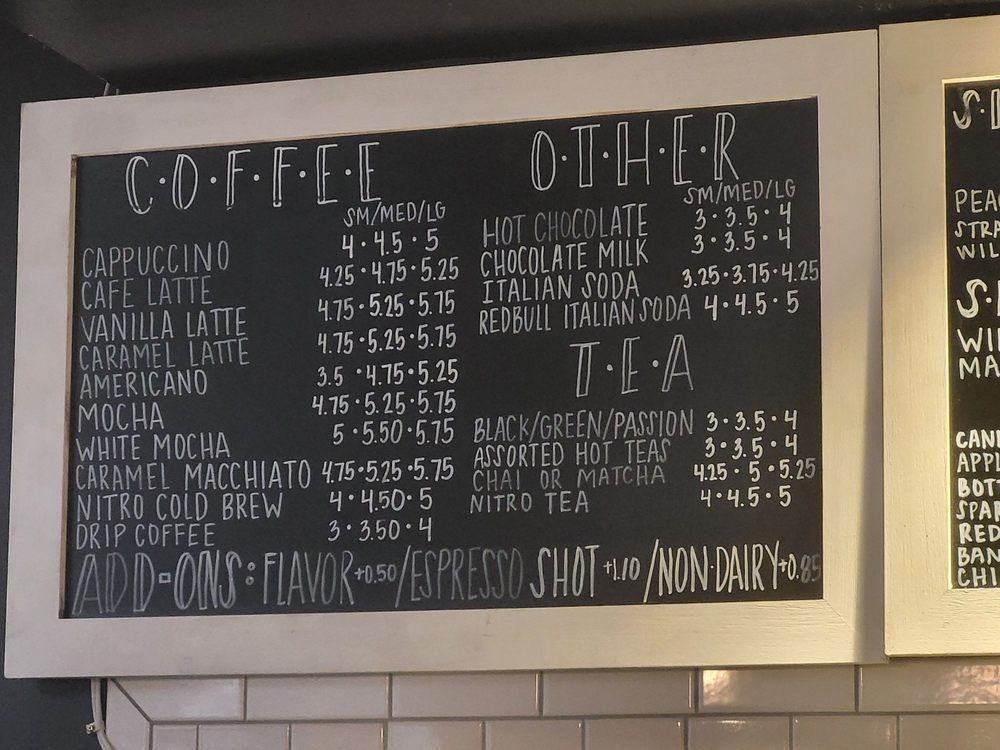 C·O·F·F·E·E
SM/MED/LG
CAPPUCCINO 4·4.5·5
CAFE LATTE 4.25·4.75·5.25
VANILLA LATTE 4.75·5.25·5.75
CARAMEL LATTE 4.75·5.25·5.75
AMERICANO 3.5·4.75·5.25
MOCHA 4.75·5.25·5.75
WHITE MOCHA 5·5.50·5.75
CARAMEL MACCHIATO 4.75·5.25·5.75
NITRO COLD BREW 4·4.50·5
DRIP COFFEE 3·3.50·4
O·T·H·E·R
SM/MED/LG
HOT CHOCOLATE 3·3.5·4
CHOCOLATE MILK 3·3.5·4
ITALIAN SODA 3.25·3.75·4.25
REDBULL ITALIAN SODA 4·4.5·5
T·E·A
BLACK/GREEN/PASSION 3·3.5·4
ASSORTED HOT TEAS 3·3.5·4
CHAI OR MATCHA 4.25·5·5.25
NITRO TEA 4·4.5·5
ADD-ONS: FLAVOR +0.50/ESPRESSO SHOT +1.10/NON·DAIRY +0.85